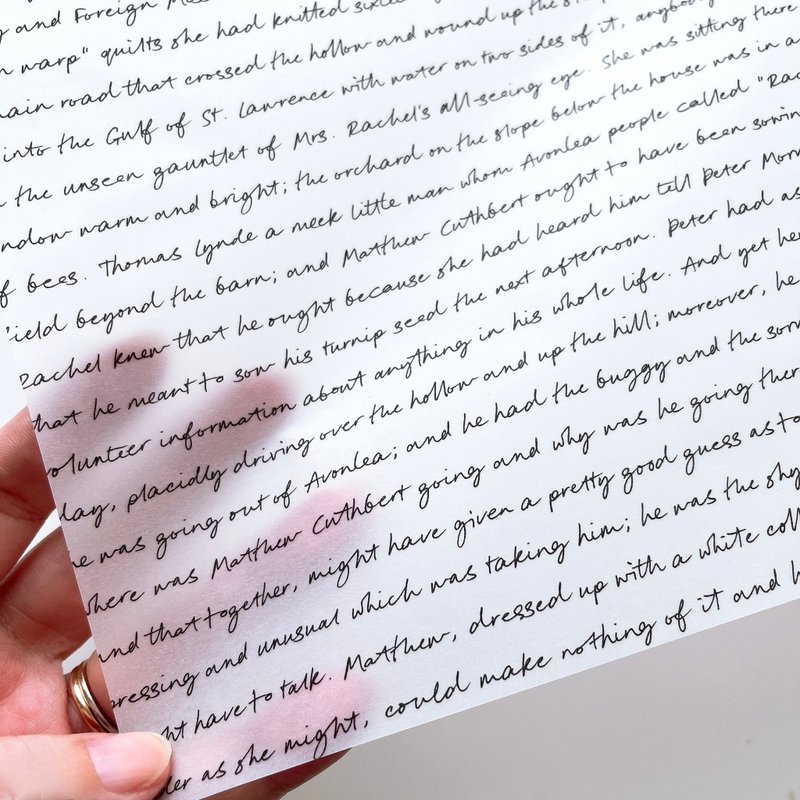 and Foreign
warp" quilts she had knitted
main road that crossed the hollow and wound up the
into the Gulf of St. Lawrence with water on two sides of it, anybody
the unseen gauntlet of Mrs. Rachel's all-seeing eye. She was sitting there
ndow warm and bright; the orchard on the slope below the house was in a
f bees. Thomas Lynde a meek little man whom Avonlea people called "Rac
ield beyond the barn; and Matthew Cuthbert ought to have been sowin
Rachel knew that he ought because she had heard him tell Peter Morr
that he meant to sow his turnip seed the next afternoon. Peter had as
volunteer information about anything in his whole life. And yet he
day, placidly driving over the hollow and up the hill; moreover, he
he was going out of Avonlea; and he had the buggy and the sor
where was Matthew Cuthbert going and why was he going ther
and that together, might have given a pretty good guess as to
pressing and unusual which was taking him; he was the shy
ght have to talk. Matthew, dressed up with a white coll
der as she might, could make nothing of it and h